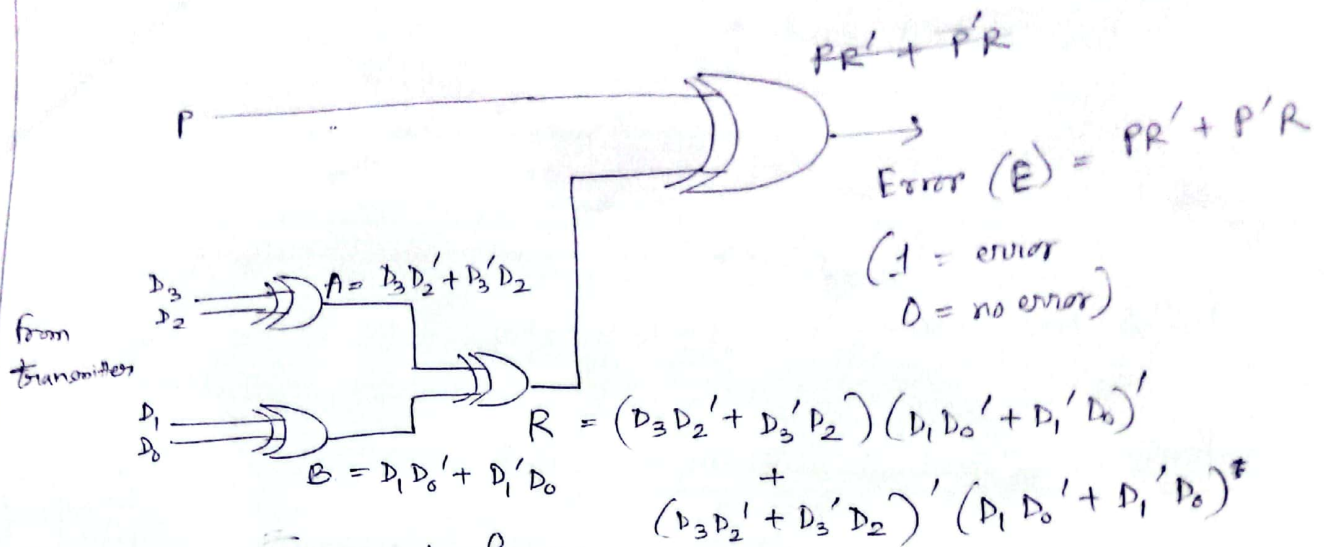 PR' + P'R
P
Error (E) = PR' + P'R
(1 = error
0 = no error)
D₃
D₂
A = D₃D₂' + D₃'D₂
from
transmitter
D₁
D₀
B = D₁D₀' + D₁'D₀
R = (D₃D₂' + D₃'D₂)(D₁D₀' + D₁'D₀)'
+
(D₃D₂' + D₃'D₂)'(D₁D₀' + D₁'D₀)